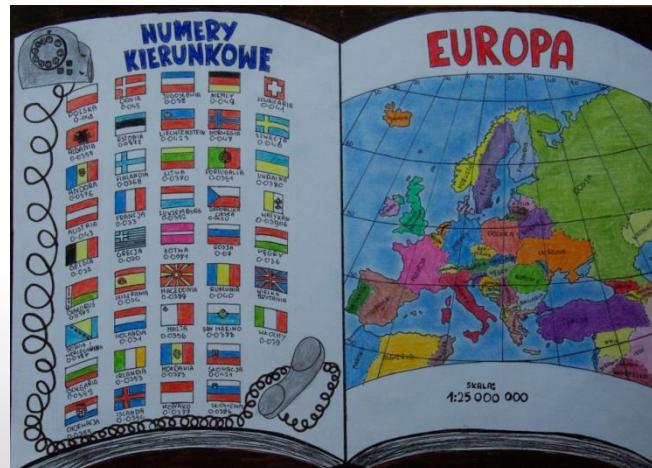 NUMERY
KIERUNKOWE
POLSKA
0-048
DANIA
0-045
JUGOSŁAWIA
0-038
NIEMCY
0-049
SZWAJCARIA
0-041
ALBANIA
0-0355
ESTONIA
0-0372
LIECHTENSTEIN
NORWEGIA
0-047
SZWECJA
0-046
ANDORA
0-0376
FINLANDIA
0-0358
LITWA
0-0370
PORTUGALIA
0-0351
UKRAINA
0-0380
AUSTRIA
0-043
FRANCJA
0-033
LUKSEMBURG
0-0352
REPUBLIKA
CZESKA
WATYKAN
BELGIA
0-032
GRECJA
0-030
ŁOTWA
0-0371
ROSJA
0-07
WĘGRY
0-036
HISZPANIA
0-034
MACEDONIA
0-0389
RUMUNIA
0-040
WIELKA
BRYTANIA
HOLANDIA
0-031
MALTA
0-0356
SAN MARINO
0-0378
WŁOCHY
0-039
BUŁGARIA
0-0359
IRLANDIA
0-0353
MOŁDAWIA
0-0373
SŁOWACJA
0-0421
CHORWACJA
0-0385
ISLANDIA
0-0354
MONAKO
0-0377
SŁOWENIA
0-0386
EUROPA
ROSJA
POLSKA
UKRAINA
TURCJA
ALGERIA
SKALA:
1:25 000 000